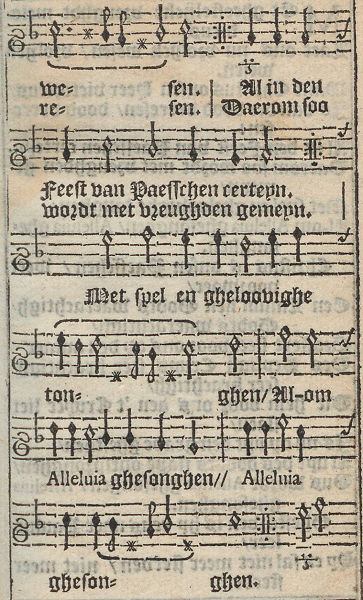 we- sen. | Al in den
re- sen. | Daerom soo
Feest van Paesschen certeyn.
wordt met vreughden gemeyn.
Met spel en gheloovighe
ton- ghen/ Al-om
Alleluia ghesonghen// Alleluia
gheson- ghen.